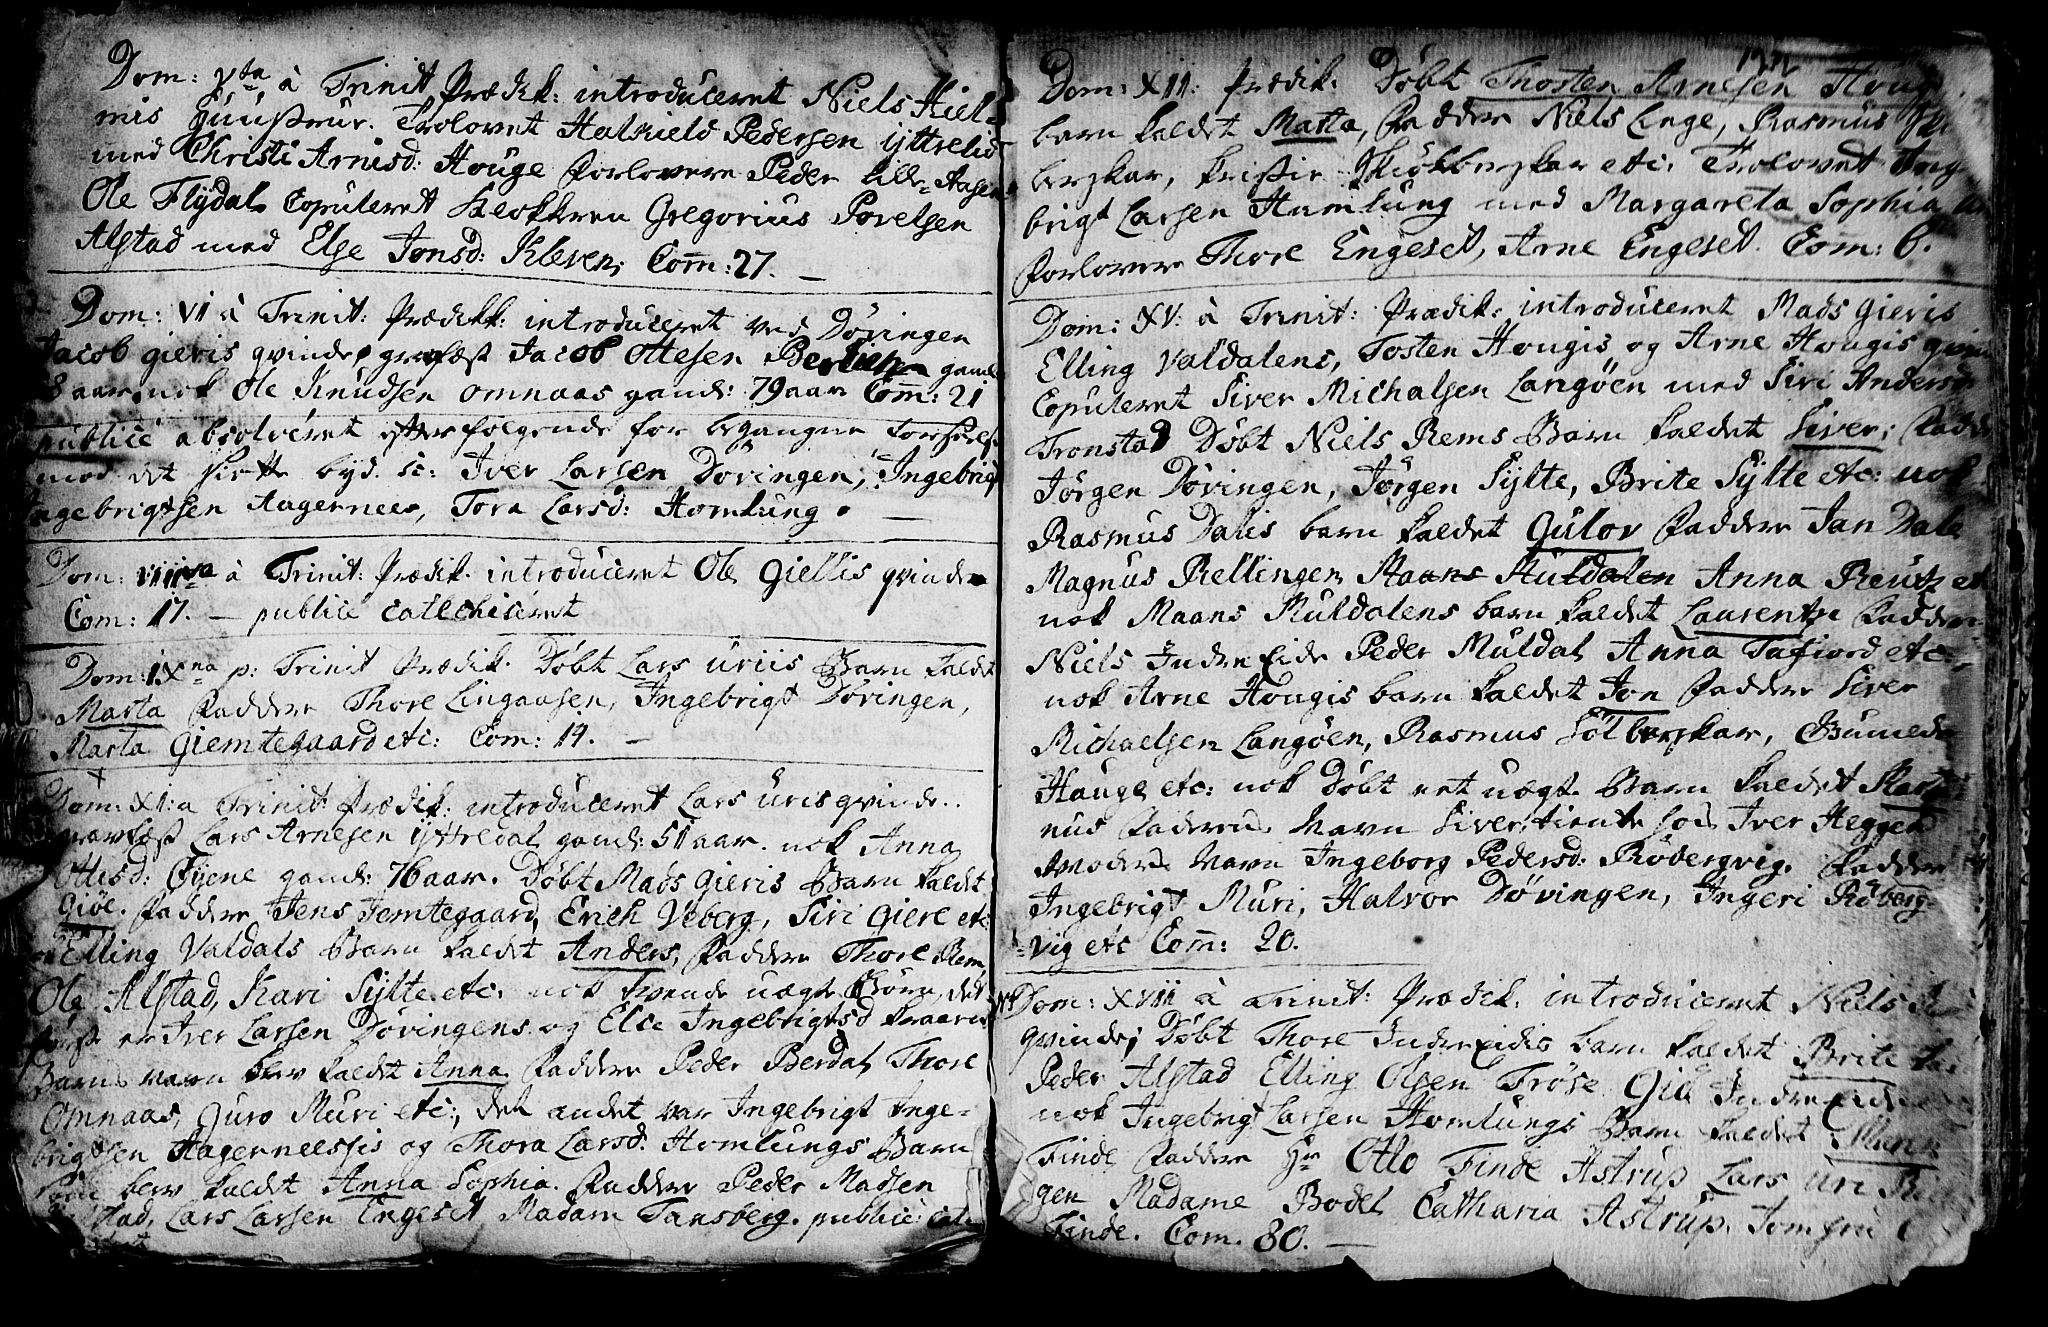 Dom: Vta à Trinit Prædik: introduceret Niels Kiel-
mis Huustrue. Trolovet Halkield Pedersen Yttrelid
med Christi Arnisd: Houge Forlovere Peder Lille-Aasen
Ole Flydal. Copuleret Klokkeren Gregorius Povelsen
Alstad med Else Jonsd: Kleven; Com̄: 27. —
Dom: VI à Trinit: Prædikk: introduceret ved Døvingen
Jacob Gieris qvinde, gravfæst Jacob Ottesen gaml
8 aar, nok Ole Knudsen Omnaas gaml: 79 aar Com̄: 21
publice absolveret efterfølgende for begangne Forseelse
mod det siette bud. sc: Iver Larsen Døvingen; Ingebrigt
Ingebrigtsen Hagernees, Tora Larsd: Homlung. —
Dom: VIIIva à Trinit: Prædik. introduceret Ole Giellis qvinde
Com: 17. — publice catechiseret
Dom: IXna p: Trinit Prædik. Døbt Lars Uriis Barn kaldet
Marta Faddere Thore Lingaasen, Ingebrigt Døvingen,
Marta Giemtegaard etc: Com: 14. —
Dom: XI: a Trinit: Prædik: introduceret Lars Uris qvinde..
gravfæst Lars Arnesen Yttredal gaml: 51 aar. nok Anna
Ottisd: Øyene gaml: 76 aar. Døbt Mads Gieris Barn kaldet
Giøe. Faddere Jens Jemtegaard, Erich Veberg, Siri Giere etc:
nok Elling Valdals Barn kaldet Anders, Faddere Thore Rem,
Ole Alstad, Kari Sylte etc: nok tvende uægte Børn, det
først er Iver Larsen Døvingens og Else Ingebrigtsd
Barns navn blev kaldet Anna Faddere Peder Berdal, Thore
Omnaas, Guro Muri etc:, det andet var Ingebrigt Inge-
brigtsen Hagerneessis og Thora Larsd: Homlungs Barn
som blev kaldet Anna Sophia. Faddere Peder Madsen
Alstad, Lars Larsen Engeset Madam Tansberg. publice: cate
Dom: XII: Prædik. Døbt Thosten Arnesen Houg
barn kaldet Marta, Faddere Niels Linge, Rasmus
berskar, Kristi Skiølberskar etc: Trolovet Inge
brigt Larsen Humlung med Margareta Sophia
Forlovere Thore Engeset, Arne Engeset. Com: 6.
Dom: XV: à Trinit: Prædik: introduceret Mads Gieris
Elling Valdalens, Tosten Hougis og Arne Hougis qvin
Copuleret Siver Michalsen Langøen med Siri Andersd
Tronstad Døbt Niels Rems Barn kaldet Siver; Faddere
Jørgen Døvingen, Jørgen Sylte, Brite Sylte etc: nok
Rasmus Dalis barn kaldet Gulov Faddere Jan Dale
Magnus Rellingen Maans Muldalen Anna Reut etc
nok Maans Muldalens barn kaldet Laurentze Faddere
Niels Indre Eide Peder Muldal, Anna Tafiord etc.
nok Arne Hougis barn kaldet Jon Faddere Siver
Michaelsen Langøen, Rasmus Sølberskar, Gunnelde
Houge etc: nok Døbt eet uægte Barn kaldet
nus Faderens Navn Siver, tiente hos Iver Heggen
Moders Navn Ingeborg Pedersd: Røbergvig. Faddere
Ingebrigt Muri, Halvor Døvingen, Ingeri Røberg-
vig etc Com̄: 20.
Dom: XVII à Trinit: Prædik. introduceret Niels
qvinde; Døbt Thore Indreeidis barn kaldet Brite
Peder Alstad Elling Olsen Trøse Gill Indreeide
nok Ingebrigt Larsen Homlungs Barn kaldet
Finde Faddere Hr Otto Finde Astrup Lars Uri
gen Madame Bodel Catharia Astrup. Jomfru
Finde. Com. 80. —